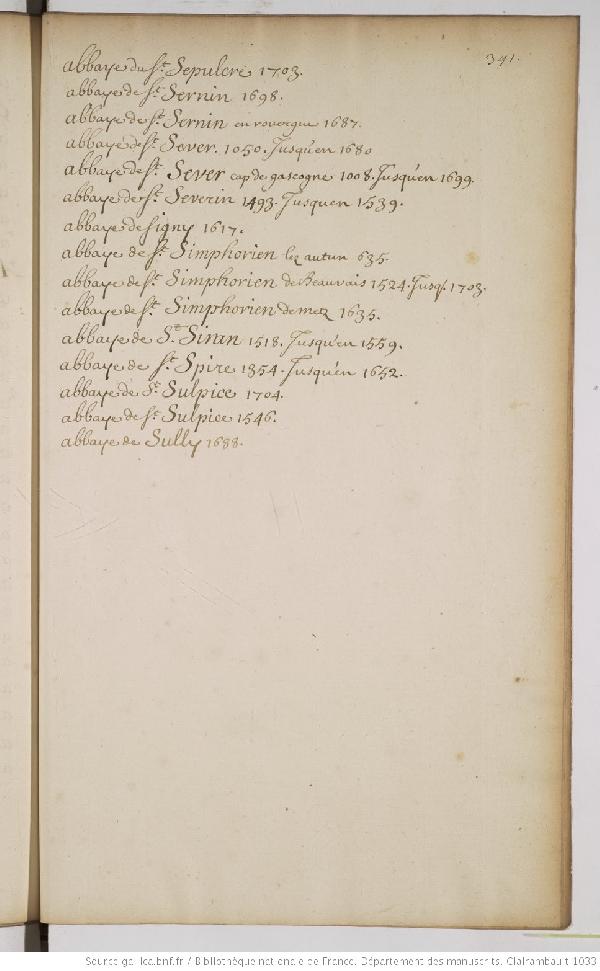 341.
abbaye du St. Sepulcre 1703.
abbaye de St. Sernin 1698.
abbaye de St. Sernin en rovergue 1687.
abbaye de St. Sever. 1050. Jusqu'en 1680
abbaye de St. Sever cap de gascogne 1008. Jusqu'en 1699.
abbaye de St. Severin 1493. Jusquen 1539.
abbaye de Signy 1617.
abbaye de St. Simphorien lez autun 635.
abbaye de St. Simphorien de Beauvais 1524. Jusq. 1703.
abbaye de St. Simphorien de metz 1635.
abbaye de St. Sinan 1518. Jusqu'en 1559.
abbaye de St. Spire 1354. Jusqu'en 1652.
abbaye de St. Sulpice 1704.
abbaye de St. Sulpice 1546.
abbaye de Sully 1688.
Source gallica.bnf.fr / Bibliothèque nationale de France. Département des manuscrits. Clairambault 1033